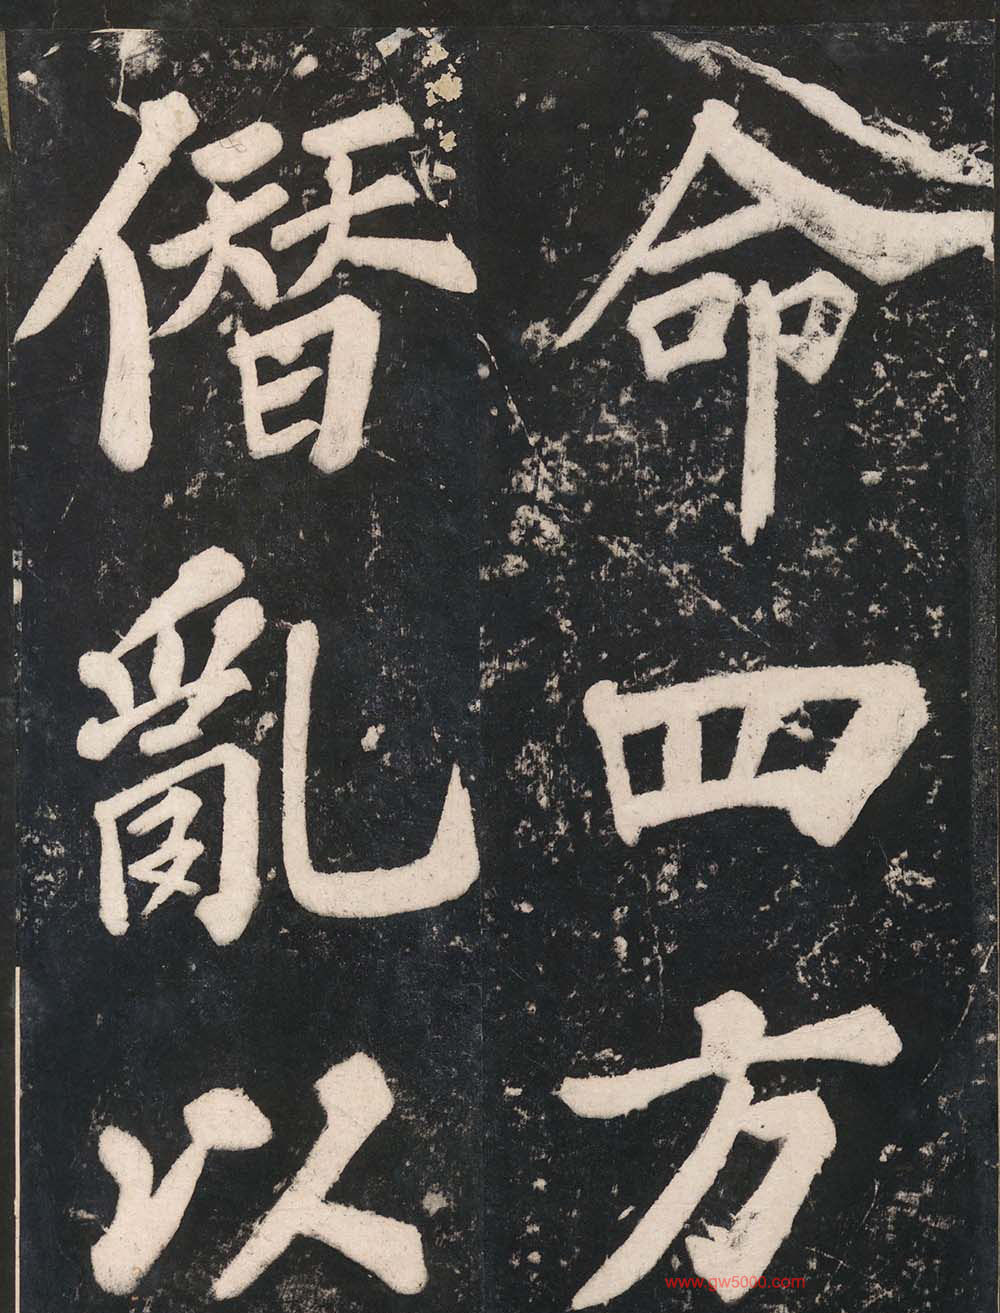 命四方
僭亂以
www.gw5000.com